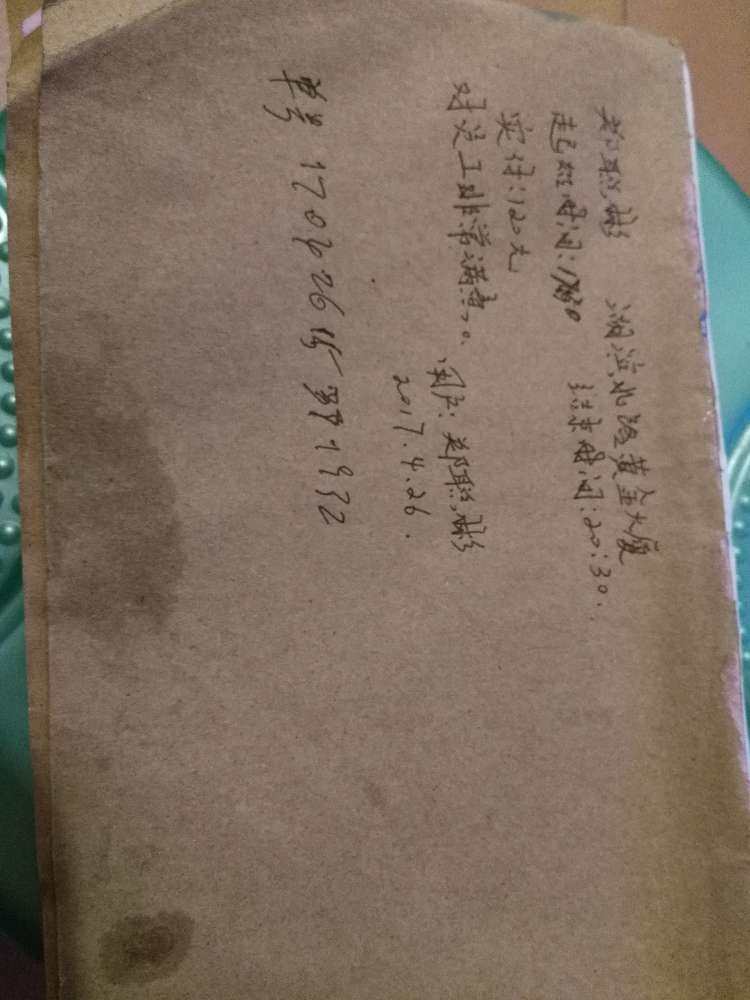 郑聪彬 湖滨北路黄金大厦
起始时间:1730 结束时间:20:30.
实付:120元
对员工非常满意。
客户:郑聪彬
2017.4.26.
单号 170426 1932